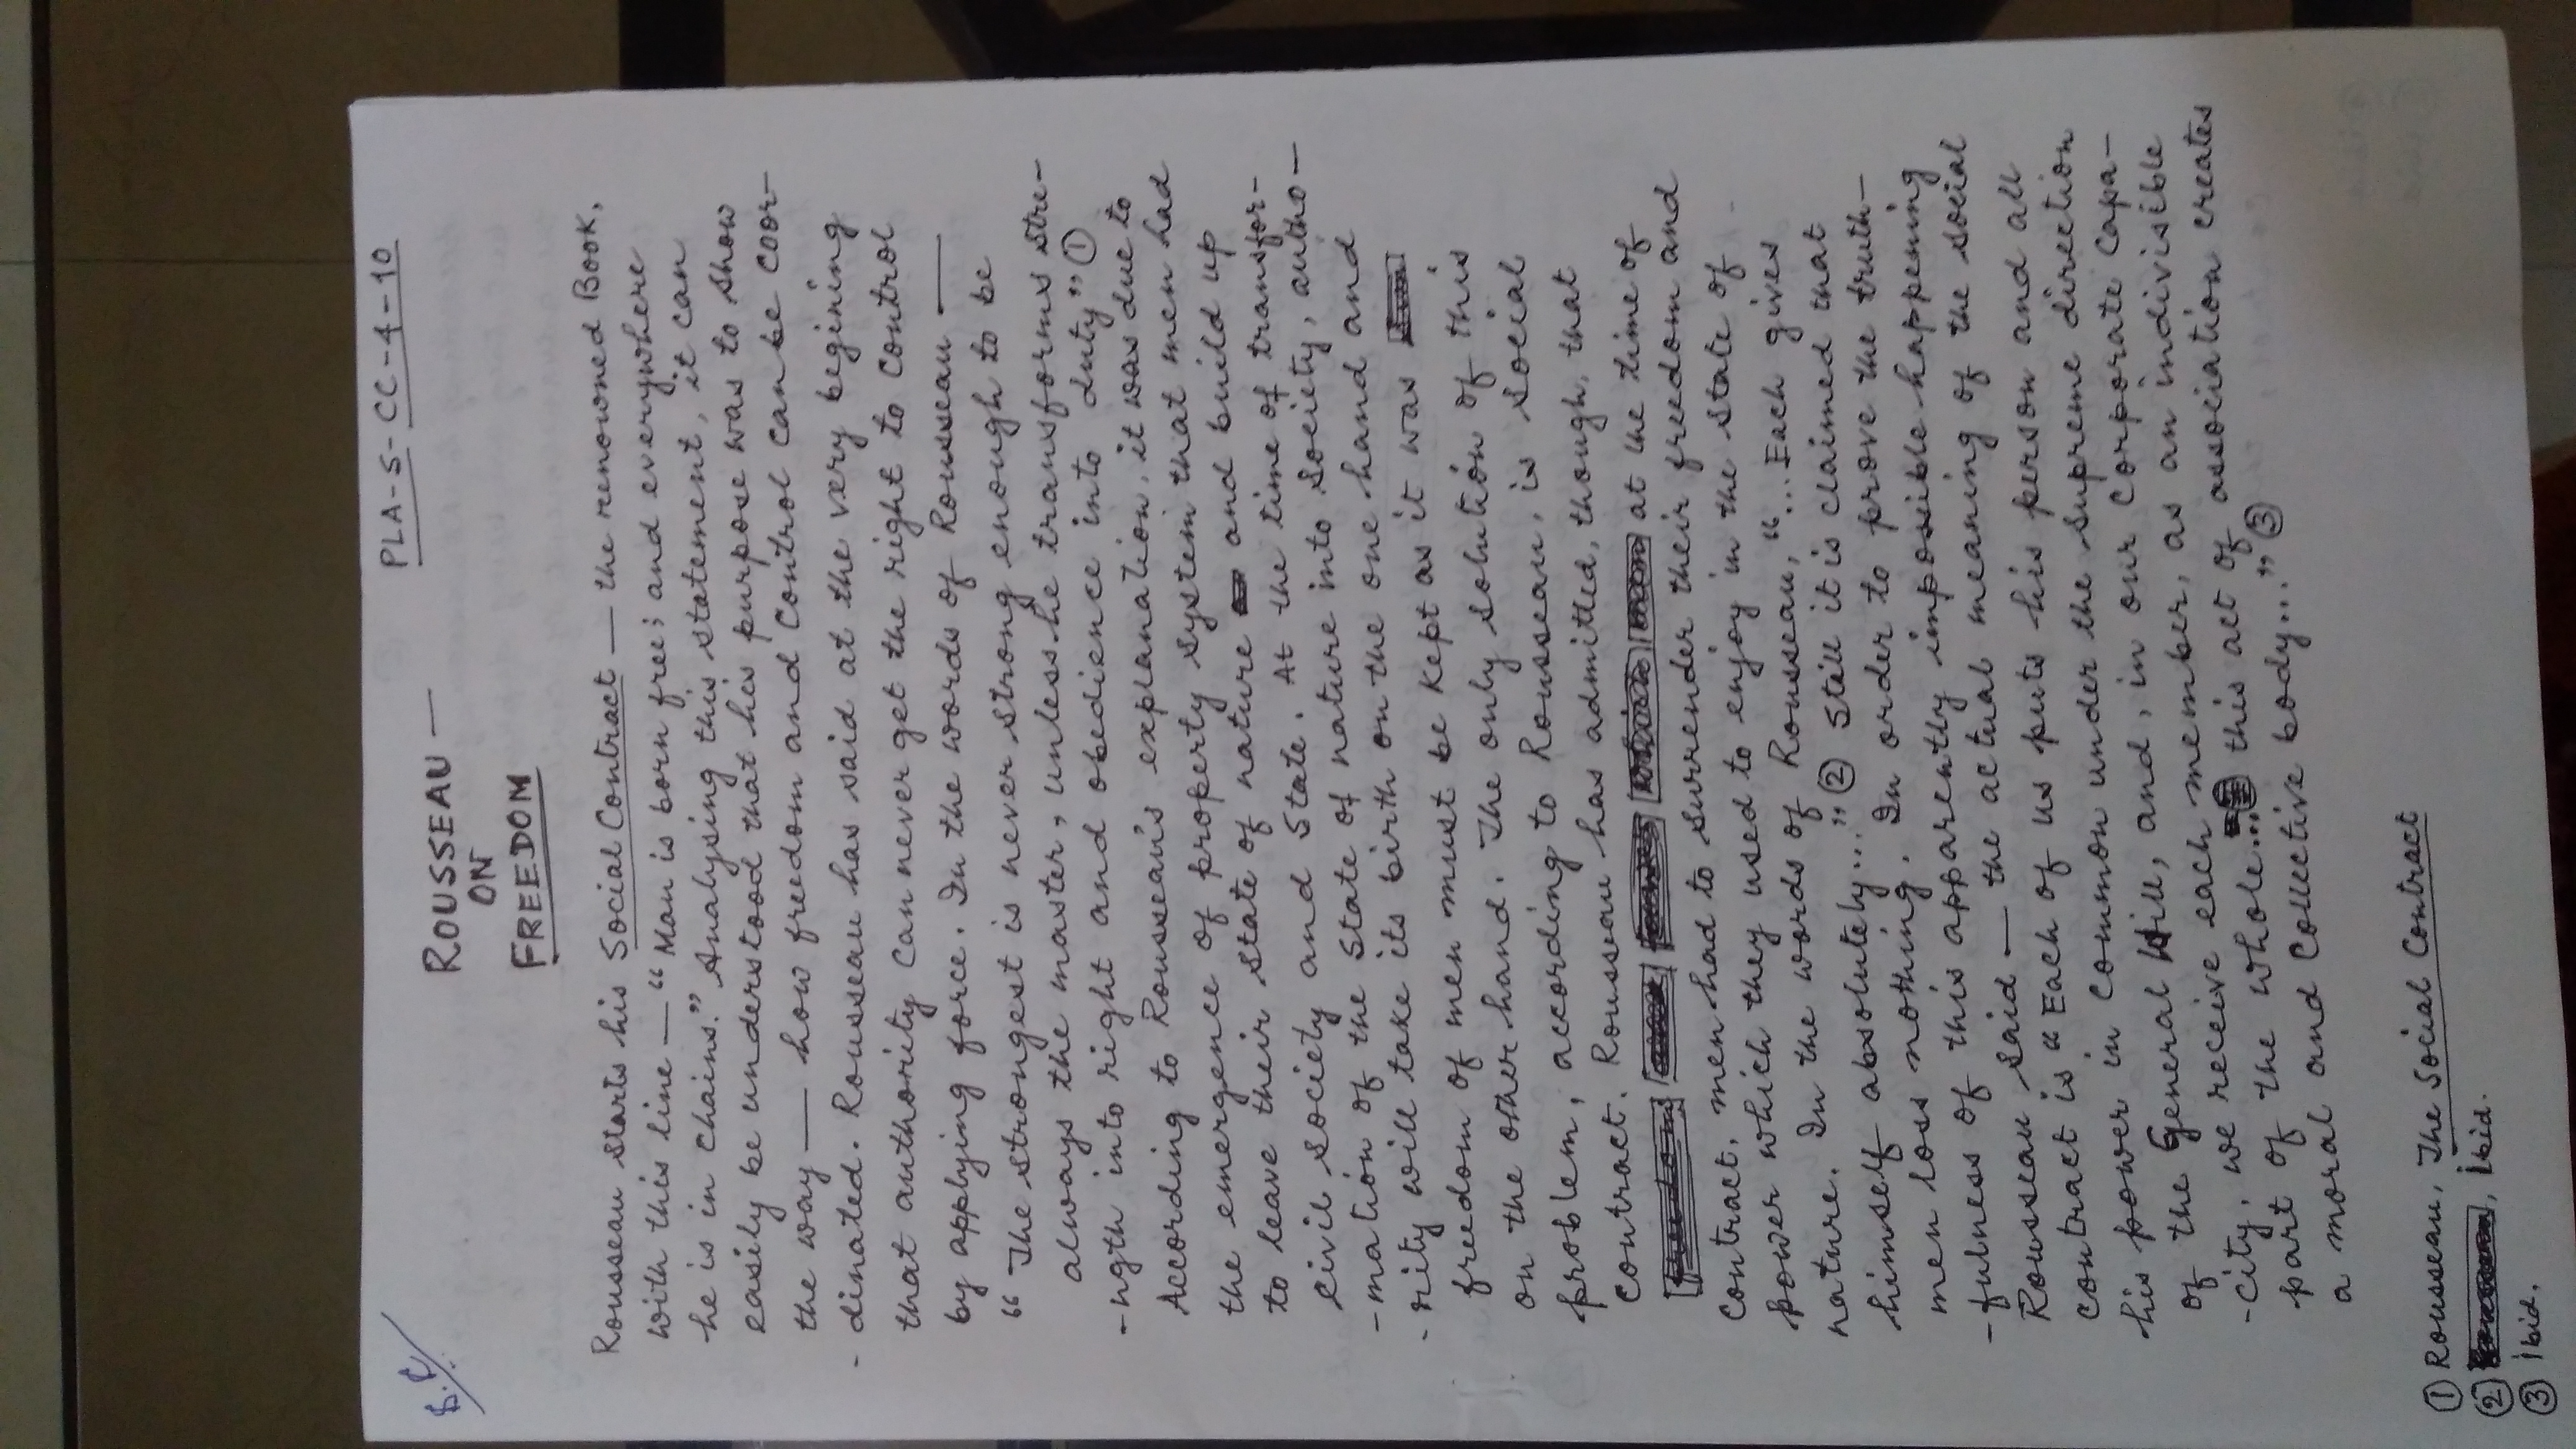 PLA-S-CC-4-10
ROUSSEAU —
ON
FREEDOM
Rousseau starts his Social Contract — the renowned Book,
with this line — “Man is born free; and everywhere
he is in chains.” Analysing this statement, it can
easily be understood that his purpose was to show
the way — how freedom and Control can be coor-
-dinated. Rousseau has said at the very begining
that authority can never get the right to control
by applying force. In the words of Rousseau —
“The strongest is never strong enough to be
always the master, unless he transforms stre-
-ngth into right and obedience into duty” ①
According to Rousseau's explanation, it was due to
the emergence of property system that men had
to leave their state of nature and build up
civil society and State. At the time of transfor-
-mation of the State of nature into Society, autho-
-rity will take its birth on the one hand and
freedom of men must be kept as it was
on the other hand. The only solution of this
problem, according to Rousseau, is social
Contract. Rousseau has admitted, though, that
at the time of
contract, men had to surrender their freedom and
power which they used to enjoy in the state of
nature. In the words of Rousseau, “... Each gives
himself absolutely...” ② Still it is claimed that
men loss nothing. In order to prove the truth-
-fulness of this apparently impossible happening
Rousseau said — the actual meaning of the social
contract is “Each of us puts his person and all
his power in common under the supreme direction
of the General Will, and, in our corporate capa-
-city, we receive each member, as an indivisible
part of the whole... this act of association creates
a moral and collective body...” ③
① Rousseau, The Social Contract
② Ibid.
③ Ibid.